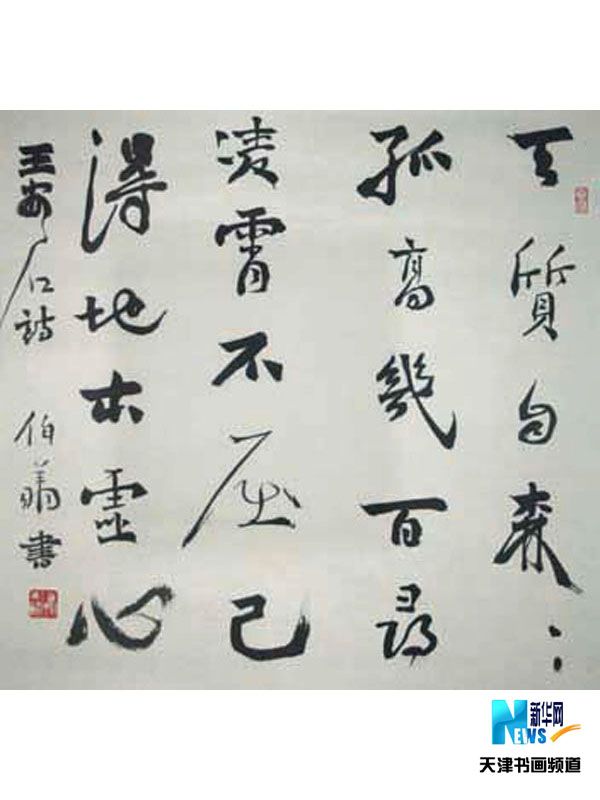 天質自森〻
孤高幾百尋
凌霄不屈己
得地本虛心
王安石詩 伯 書
新华网
NEWS
天津书画频道